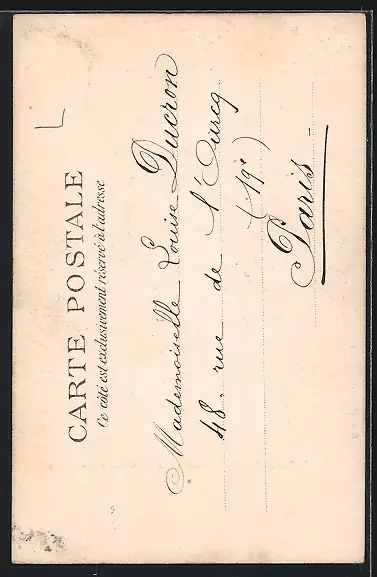 CARTE POSTALE
Ce côté est exclusivement réservé à l'adresse
Mademoiselle Louise Ducron
48. rue de l'Ourcq
(19e)
Paris